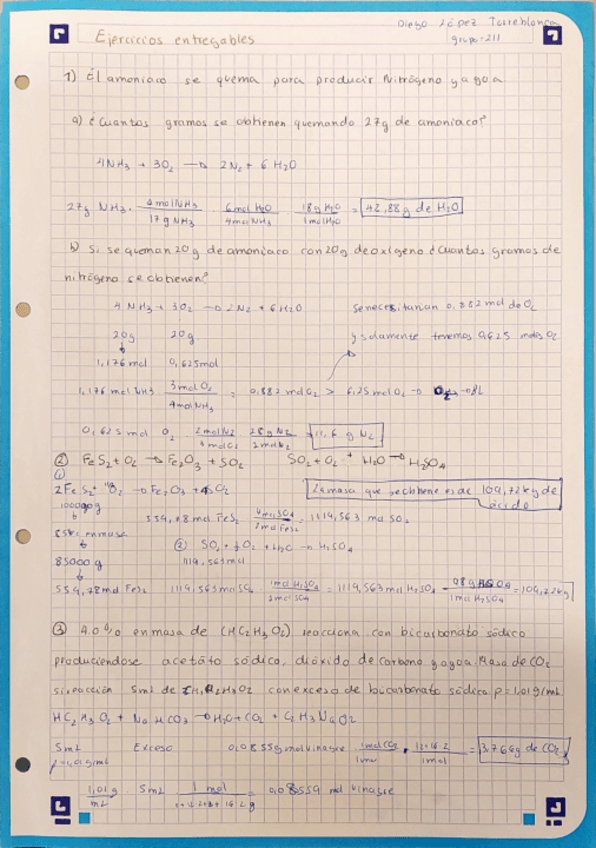 Diego López Torreblanca
grupo:211
Ejercicios entregables
1) El amoniaco se quema para producir Nitrógeno y agua
a) ¿Cuantos gramos se obtienen quemando 27g de amoniaco?
4NH3 + 3O2 → 2N2 + 6H2O
27g NH3 · 4molNH3/17gNH3 · 6molH2O/4molNH3 · 18gH2O/1molH2O = 42,88g de H2O
b) Si se queman 20g de amoniaco con 20g de oxígeno ¿Cuantos gramos de
nitrógeno se obtienen?
4NH3 + 3O2 → 2N2 + 6H2O se necesitarian 0,882 mol de O2
20g 20g y solamente tenemos 0,625 moles O2
1,176mol 0,625mol
1,176 mol NH3 3molO2/4molNH3 = 0,882 molO2 > 6,25 mol O2 →
0,625 mol O2 2molN2 28gN2/2molN2 = 11,6 g N2
② FeS2 + O2 → Fe2O3 + SO2 SO2 + O2 + H2O → H2SO4
①
2FeS2 + O2 → Fe2O3 + 4SO2 La masa que se obtiene es de 109,72kg de
ácido
554,78mol FeS2 = 1114,563 mol SO2
85% en masa ② SO2 + ½O2 + H2O → H2SO4
85000g 1114,563mol
554,78mol FeS2 1114,563mol SO2 · 1mol H2SO4 = 1114,563 mol H2SO4 = 109,22kg
③ 4.0% en masa de (HC2H3O2) reacciona con bicarbonato sódico
produciendose acetato sódico, dióxido de carbono y agua. Masa de CO2
si reacción 5ml de con exceso de bicarbonato sódico. ρ=1,01g/ml
HC2H3O2 + NaHCO3 → H2O + CO2 + C2H3NaO2
5ml Exceso 0,0855 mol vinagre 1molCO2 = 3,766g de CO2
ρ=1,01g/ml
1,01g/ml 5ml 1mol = 0,08559 mol vinagre